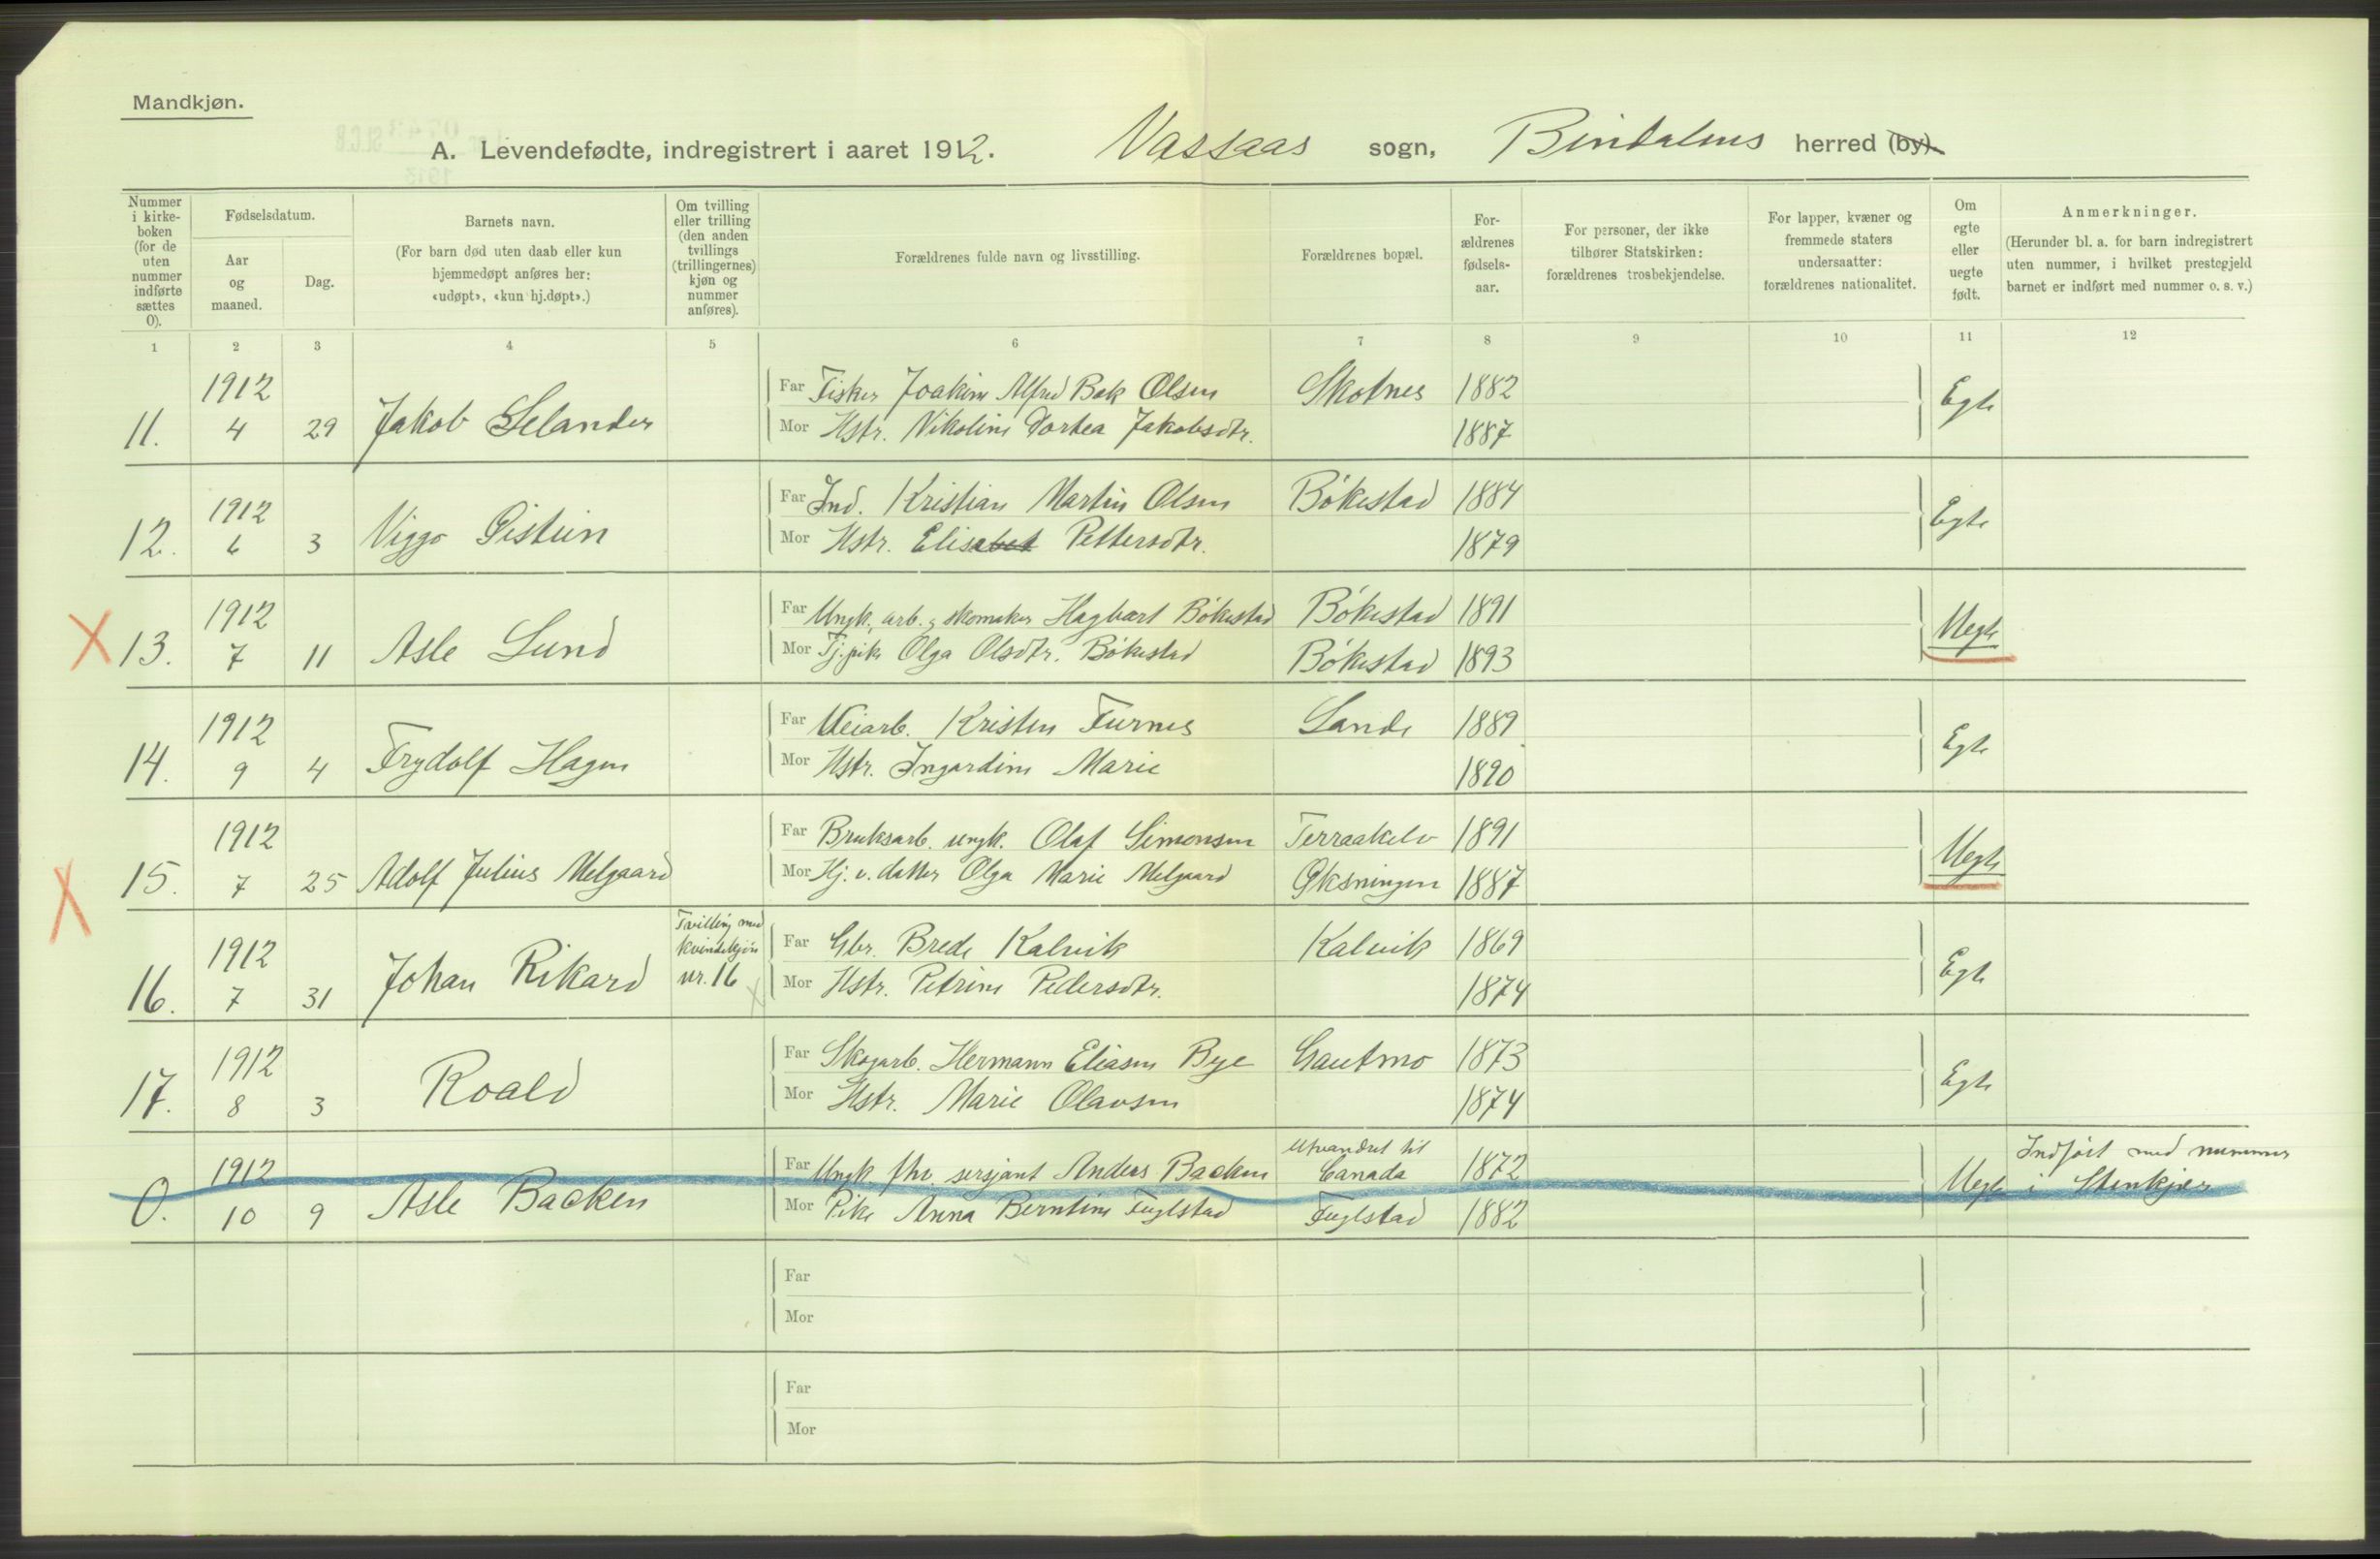 Mandkjøn.
A. Levendefødte, indregistrert i aaret 1912. Vassaas sogn, Bindalens herred (by).
Nummer i kirke-boken (for de uten nummer indførte sættes 0).
Fødselsdatum.
Aar og maaned.
Dag.
Barnets navn.
(For barn død uten daab eller kun hjemmedøpt anføres her: «udøpt», «kun hj.døpt».)
Om tvilling eller trilling (den anden tvillings (trillingernes) kjøn og nummer anføres).
Forældrenes fulde navn og livsstilling.
Forældrenes bopæl.
For-ældrenes fødsels-aar.
For personer, der ikke tilhører Statskirken: forældrenes trosbekjendelse.
For lapper, kvæner og fremmede staters undersaatter: forældrenes nationalitet.
Om egte eller uegte født.
Anmerkninger.
(Herunder bl. a. for barn indregistrert uten nummer, i hvilket prestegjeld barnet er indført med nummer o. s. v.)
1 2 3 4 5 6 7 8 9 10 11 12
1912 Far Fisker Joakim Alfred Bek Olsen Skotnes 1882 Egte
11. 4 29 Jakob Selander Mor Hstr. Nikoline Dortea Jakobsdtr. 1887
1912 Far Ind. Kristian Martin Olsen Bökestad 1884 Egte
12. 6 3 Viggo Mor Hstr. Elisabet Pettersdtr. 1879
1912 Far Ungk. arb. & skomaker Hagbart Bökestad Bökestad 1891 Uegte
X 13. 7 11 Asle Lund Mor Tj.pike Olga Olsdtr. Bökestad Bökestad 1893
1912 Far Veiarb. Kristen Furnes Lande 1889 Egte
14. 9 4 Frydolf Hagen Mor Hstr. Ingardine Marie 1890
1912 Far Bruksarb. ungk. Olaf Simonsen Terraakelv 1891 Uegte
X 15. 7 25 Adolf Julius Melgaard Mor Hj. v. datter Olga Marie Melgaard Öksningen 1887
Tvilling med kvindekjøn nr. 16
1912 Far Gbr. Brede Kalvik Kalvik 1869 Egte
16. 7 31 Johan Rikard Mor Hstr. Petrine Pedersdtr. 1874
1912 Far Skogarb. Hermann Eliasen Bye Gautmo 1873 Egte
17. 8 3 Roald Mor Hstr. Marie Olavsen 1874
1912 Far Ungk. fhv. sersjant Anders Backen Utvandret til Canada 1872 Uegte Indført med nummer
0. 10 9 Asle Backen Mor Pike Anna Berntine Fuglstad Fuglstad 1882 i Stenkjær
Far
Mor
Far
Mor